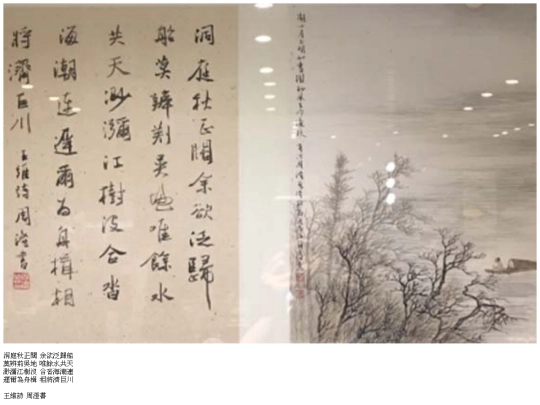 洞庭秋正闊余欲泛歸
船莫辨荊吳地唯餘水
共天渺瀰江樹沒合沓
海潮連遲爾為舟楫相
將濟巨川 王維詩周澄書
洞庭秋正闊 余欲泛歸船
莫辨荊吳地 唯餘水共天
渺瀰江樹沒 合沓海潮連
遲爾為舟楫 相將濟巨川
王維詩 周澄書